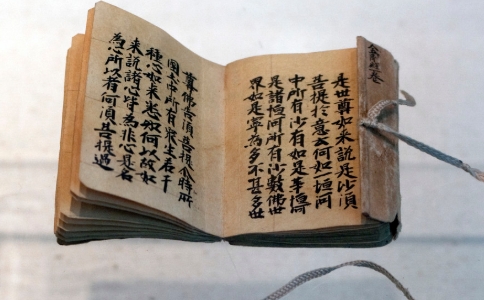 金剛經卷
是世尊如來說是沙須
菩提於意云何如一恒河
中所有沙有如是等恒河
是諸恒河所有沙數佛世
界如是寧為多不甚多世
尊佛告須菩提尒時所
國土中所有眾生若干
種心如來悉知何以故如
來說諸心皆為非心是名
為心所以者何須菩提過